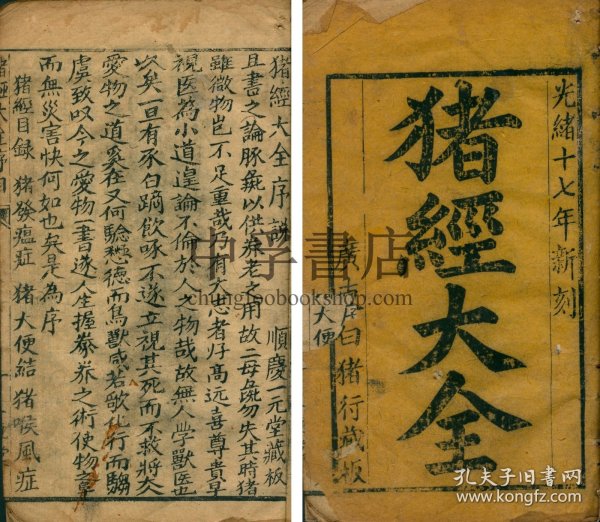 光緒十七年新刻
猪經大全
廣安序白猪行藏板
大便
猪經大全序說 順慶一元堂藏板
且書之論豚彘以供養老之用故二母彘勿失其時猪
雖微物豈不足重哉乃有大志者好高远喜尊貴草
視医為小道遑論不倫於人之物哉故無人學獸医也
久矣一旦有豕白蹢飲啄不遂立視其死而不救將大
愛物之道奚在又何驗德而鳥獸咸若歌化行而騶
虞致叹今之愛物書遂人生握豢养之術使物育
而無災害快何如也矣是為序
猪經目録 猪發瘟症 猪大便結 猪喉風症
猪經大全序目
中孚書店
chungfoobookshop.com
孔夫子旧書网
www.kongfz.com